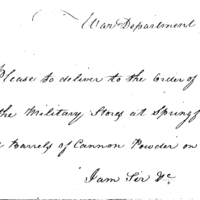 War Department
Please to deliver to the Order of
the Military Stores at Springf
Barrels of Cannon Powder on
I am Sir &c